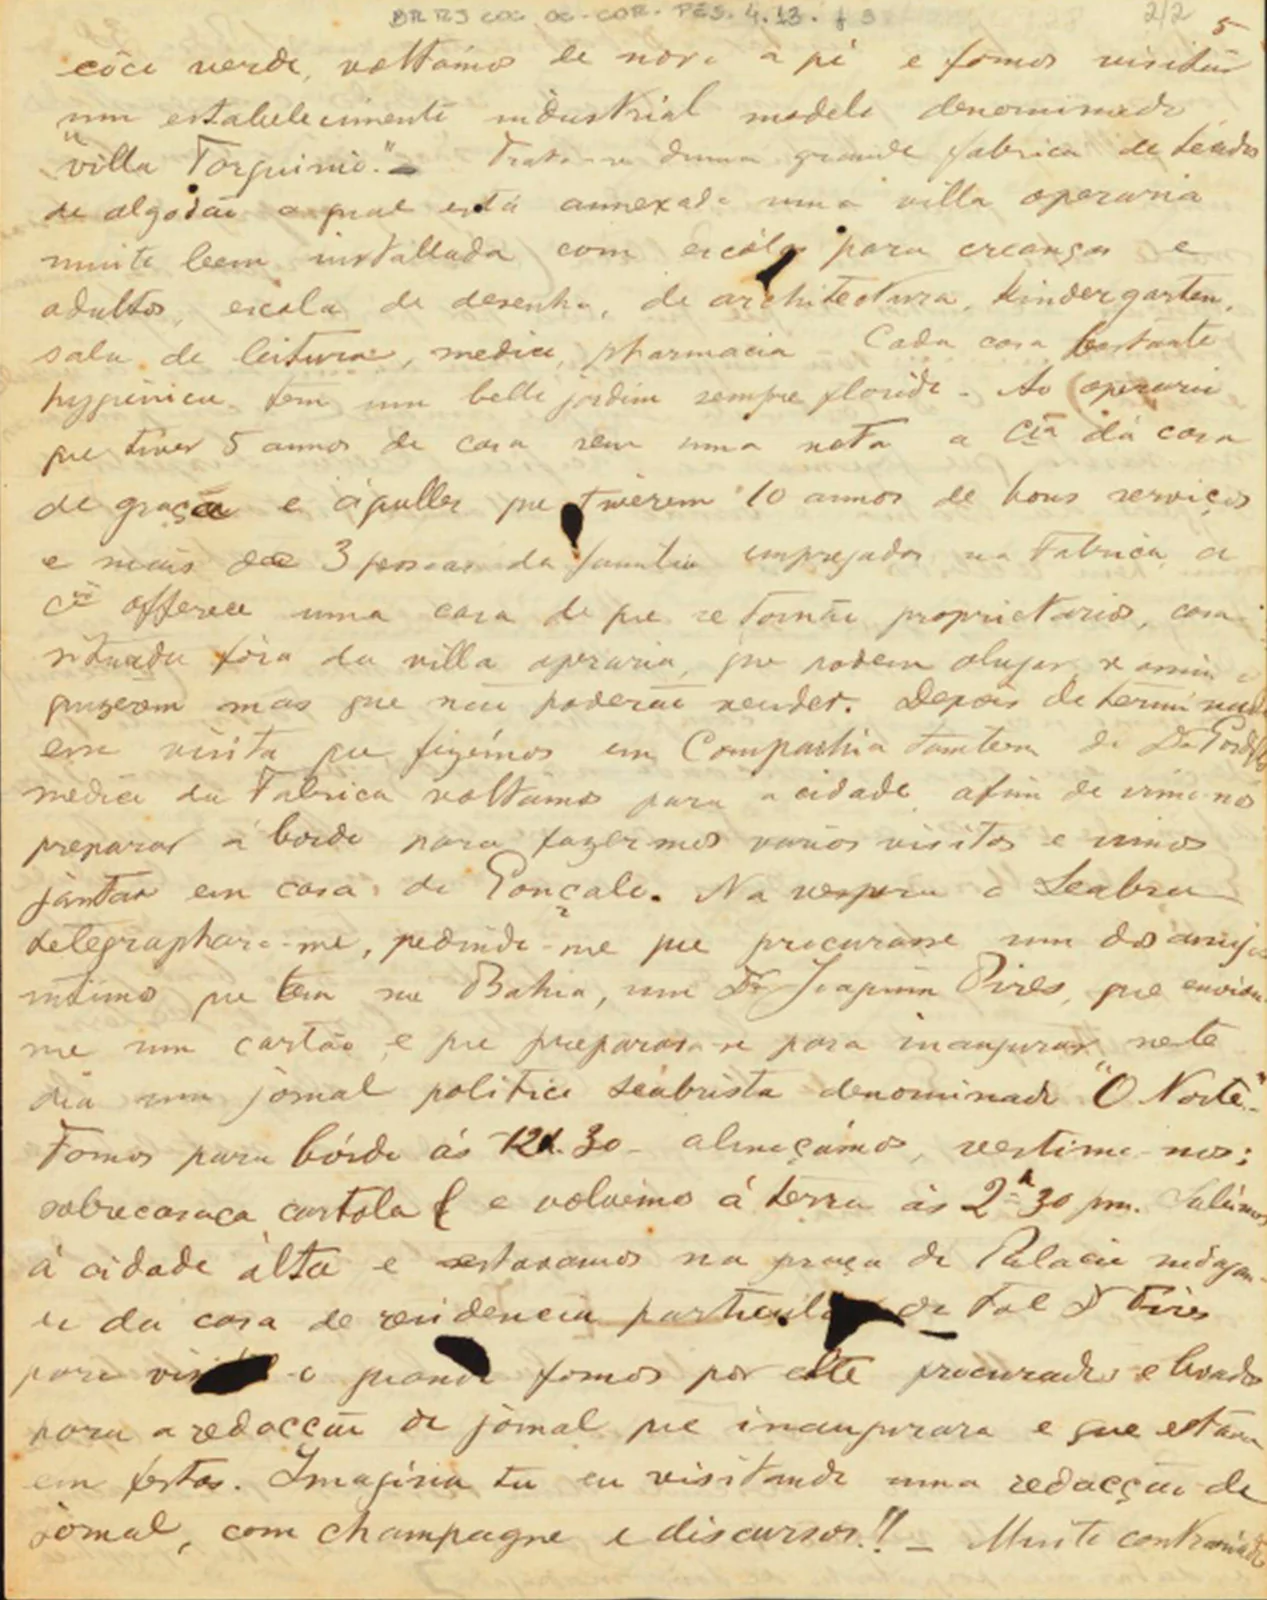 BR RJ COC OC-COR. PES. 4.13. f 3 2/2
5
côco verde, voltámos de novo a pé e fomos visitar
um estabelecimento industrial modelo denominado
"villa Torquinio." – Trata-se duma grande fabrica de tecidos
de algodão a qual está annexada uma villa operaria
muito beem installada com escólas para creanças e
adultos, escola de desenho, de architectura, Kindergarten,
sala de leitura, medico, pharmacia – Cada casa bastante
hygienica tem um bello jardim sempre florido – Ao operario
que tiver 5 annos de casa sem uma nota a Cia dá casa
de graça e áquelles que tiverem 10 annos de bons serviços
e mais de 3 pessoas da familia empregadas na Fabrica, a
Cia offerece uma casa de que se tornão proprietarios, casa
situada fóra da villa operaria, que podem alugar se assim o
quizerem mas que não poderão vender. Depois de terminada
essa visita que fizémos em Companhia tambem do Dr
medico da Fabrica voltámos para a cidade afim de virmo-nos
preparar á bordo para fazermos varias visitas e irmos
jantar em casa do Gonçalo. Na vespera o Seabra
telegraphara-me, pedindo-me que procurasse um dos amigos
intimos que tem na Bahia, um Dr Joaquim Pires, que enviou-
me um cartão e que preparava-se para inaugurar neste
dia um jornal politico Seabrista denominado "O Norte".
Fomos para bórdo ás 12h.30 – almoçámos, vestimo-nos:
sobrecasaca cartola & e volvemos á terra ás 2h 30 pm. Subimos
á cidade alta e estavamos na praça de Palacio indagan-
do da casa de residencia particular do tal Dr Pires
para visital-o quando fomos por elle procurados e levados
para a redacção do jornal que inaugurara e que estava
em festas. Imagina tu eu visitando uma redacção de
jornal, com champagne e discursos!! – Muito contrariado